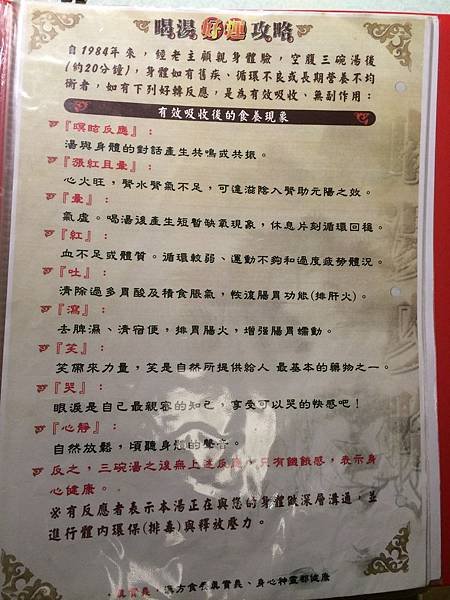 喝湯好運攻略
自1984年來，經老主顧親身體驗，空腹三碗湯後
(約20分鐘)，身體如有舊疾、循環不良或長期營養不均
衡者，如有下列好轉反應，是為有效吸收、無副作用：
有效吸收後的食養現象
『暝眩反應』：
湯與身體的對話產生共鳴或共振。
『漲紅且暈』：
心火旺，腎水腎氣不足，可達滋陰入腎助元陽之效。
『暈』：
氣虛。喝湯後產生短暫缺氧現象，休息片刻循環回穩。
『紅』：
血不足或體質。循環較弱、運動不夠和過度疲勞體況。
『吐』：
清除過多胃酸及積食脹氣，恢復腸胃功能(排肝火)。
『瀉』：
去脾濕、清宿便，排胃腸火，增強腸胃蠕動。
『笑』：
笑備來力量，笑是自然所提供給人 最基本的藥物之一。
『哭』：
眼淚是自己最親密的知己，享受可以哭的快感吧！
『心靜』：
自然放鬆，傾聽身體的聲音。
反之，三碗湯之後無上述反應，只有饑餓感，表示身
心健康。
※有反應者表示本湯正在與您的身體做深層溝通，並
進行體內環保(排毒)與釋放壓力。
真實長，漢方食養真實長、身心神靈都健康